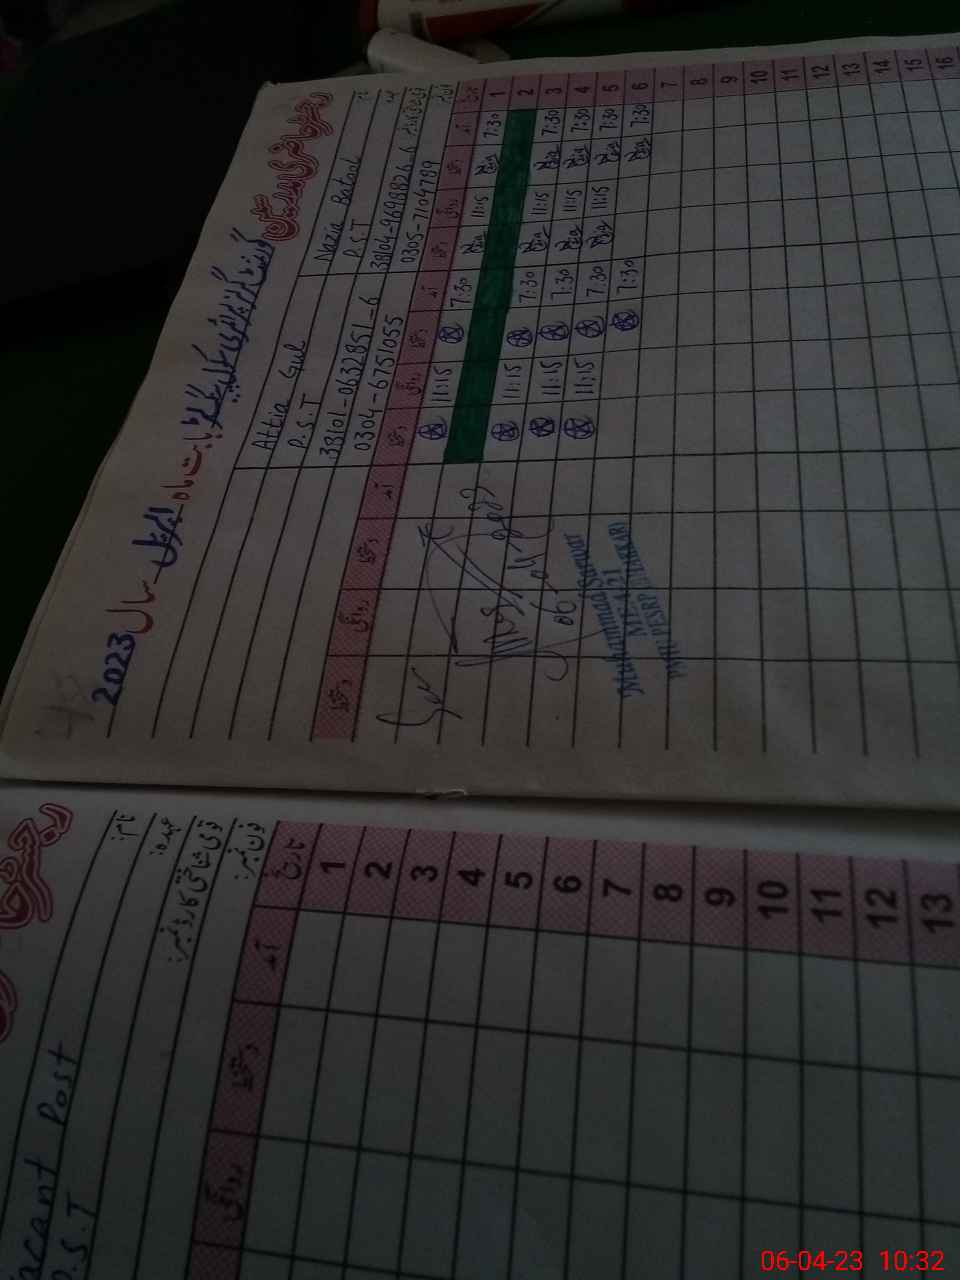 رجسٹر حاضری مدرسین
گورنمنٹ گرلز پرائمری سکول بابت ماہ اپریل سال 2023
نام Nazia Batool Attia Gul
P.S.T P.S.T
38104-9698826-6 38101-0632851-6
0305-7104789 0304-6751055
تاریخ آمد دستخط روانگی دستخط آمد دستخط روانگی دستخط آمد دستخط روانگی دستخط
1 7:30 11:15 7:30 11:15
2
3 7:30 11:15 7:30 11:15
4 7:30 11:15 7:30 11:15
5 7:30 11:15 7:30 11:15
6 7:30 7:30
7
8
9
10
11
12
13
14
15
16
Muhammad Sarwar
MEA-21
رجسٹر حا
نام: acant Post
عہدہ: P.S.T
قومی شناختی کارڈ نمبر:
فون نمبر:
تاریخ آمد دستخط روانگی
1
2
3
4
5
6
7
8
9
10
11
12
13
06-04-23 10:32